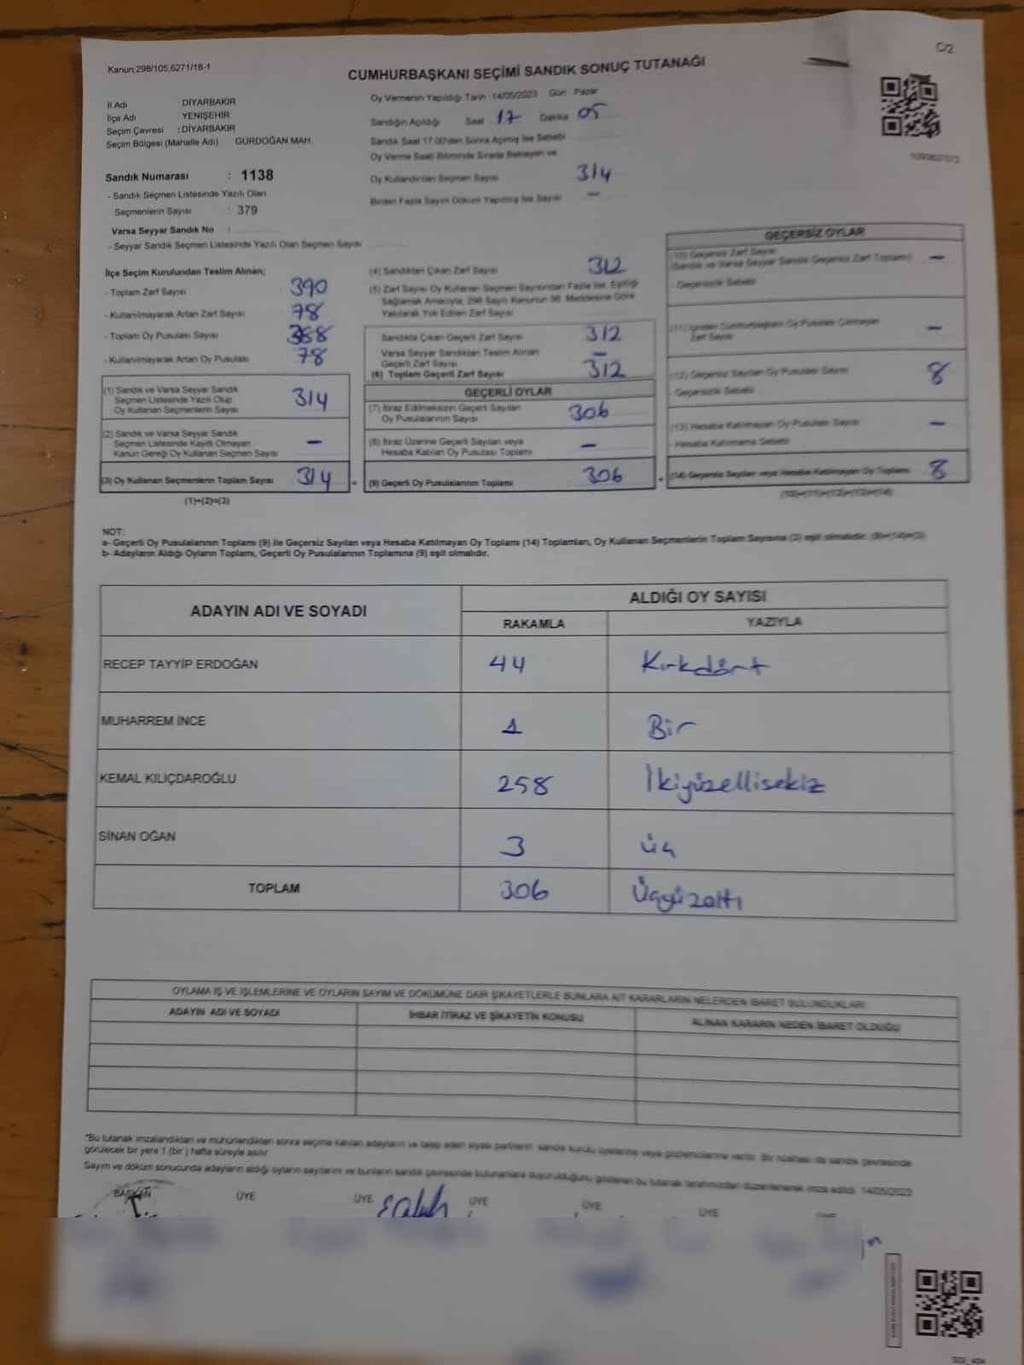 C/2
Kanun:298/105,6271/18-1
CUMHURBAŞKANI SEÇİMİ SANDIK SONUÇ TUTANAĞI
İl Adı DİYARBAKIR
İlçe Adı YENİŞEHİR
Seçim Çevresi : DİYARBAKIR
Seçim Bölgesi (Mahalle Adı) GÜRDOĞAN MAH.
Sandık Numarası : 1138
- Sandık Seçmen Listesinde Yazılı Olan
Seçmenlerin Sayısı : 379
Varsa Seyyar Sandık No :
- Seyyar Sandık Seçmen Listesinde Yazılı Olan Seçmen Sayısı
Oy Vermenin Yapıldığı Tarih 14/05/2023 Gün Pazar
Sandığın Açıldığı Saat 17 Dakika 05
Sandık Saat 17.00'den Sonra Açılmış İse Sebebi
Oy Verme Saati Bitiminde Sırada Bekleyen ve
Oy Kullandırılan Seçmen Sayısı 314
Birden Fazla Sayım Döküm Yapılmış İse Sayısı –
İlçe Seçim Kurulundan Teslim Alınan;
- Toplam Zarf Sayısı 390
- Kullanılmayarak Artan Zarf Sayısı 78
- Toplam Oy Pusulası Sayısı 388
- Kullanılmayarak Artan Oy Pusulası 78
(1) Sandık ve Varsa Seyyar Sandık
Seçmen Listesinde Yazılı Olup
Oy Kullanan Seçmenlerin Sayısı 314
(2) Sandık ve Varsa Seyyar Sandık
Seçmen Listesinde Kayıtlı Olmayan
Kanun Gereği Oy Kullanan Seçmen Sayısı –
(3) Oy Kullanan Seçmenlerin Toplam Sayısı 314
(1)+(2)=(3)
(4) Sandıktan Çıkan Zarf Sayısı 312
(5) Zarf Sayısı Oy Kullanan Seçmen Sayısından Fazla İse, Eşitliği
Sağlamak Amacıyla, 298 Sayılı Kanunun 98. Maddesine Göre
Yakılarak Yok Edilen Zarf Sayısı
Sandıkta Çıkan Geçerli Zarf Sayısı 312
Varsa Seyyar Sandıktan Teslim Alınan
Geçerli Zarf Sayısı –
(6) Toplam Geçerli Zarf Sayısı 312
GEÇERLİ OYLAR
(7) İtiraz Edilmeksizin Geçerli Sayılan
Oy Pusulalarının Sayısı 306
(8) İtiraz Üzerine Geçerli Sayılan veya
Hesaba Katılan Oy Pusulası Toplamı –
(9) Geçerli Oy Pusulalarının Toplamı 306
GEÇERSİZ OYLAR
(10) Geçersiz Zarf Sayısı
(Sandık ve Varsa Seyyar Sandık Geçersiz Zarf Toplamı) –
Geçersizlik Sebebi
Zarf Sayısı –
(12) Geçersiz Sayılan Oy Pusulası Sayısı 8
- Geçersizlik Sebebi
(13) Hesaba Katılmayan Oy Pusulası Sayısı –
- Hesaba Katılmama Sebebi
(14) Geçersiz Sayılan veya Hesaba Katılmayan Oy Toplamı 8
(10)+(11)+(12)+(13)=(14)
NOT:
a- Geçerli Oy Pusulalarının Toplamı (9) ile Geçersiz Sayılan veya Hesaba Katılmayan Oy Toplamı (14) Toplamları, Oy Kullanan Seçmenlerin Toplam Sayısına (3) eşit olmalıdır. (9)+(14)=(3)
b- Adayların Aldığı Oyların Toplamı, Geçerli Oy Pusulalarının Toplamına (9) eşit olmalıdır.
ADAYIN ADI VE SOYADI ALDIĞI OY SAYISI
RAKAMLA YAZIYLA
RECEP TAYYİP ERDOĞAN 44 Kırkdört
MUHARREM İNCE 1 Bir
KEMAL KILIÇDAROĞLU 258 İkiyüzellisekiz
SİNAN OĞAN 3 üç
TOPLAM 306 Üçyüzaltı
OYLAMA İŞ VE İŞLEMLERİNE VE OYLARIN SAYIM VE DÖKÜMÜNE DAİR ŞİKAYETLERLE BUNLARA AİT KARARLARIN NELERDEN İBARET BULUNDUKLARI
ADAYIN ADI VE SOYADI İHBAR İTİRAZ VE ŞİKAYETİN KONUSU ALINAN KARARIN NEDEN İBARET OLDUĞU
*Bu tutanak imzalandıktan ve mühürlendikten sonra seçime katılan adayların ve talep eden siyasi partilerin sandık kurulu üyelerine veya gözlemcilerine verilir. Bir nüshası da sandık çevresinde
görülecek bir yere 1 (bir) hafta süreyle asılır.
Sayım ve döküm sonucunda adayların aldığı oyların sayılarını ve bunların sandık çevresinde bulunanlara duyurulduğunu gösteren bu tutanak tarafımızdan düzenlenerek imza edildi. 14/05/2023
BAŞKAN ÜYE ÜYE ÜYE ÜYE ÜYE